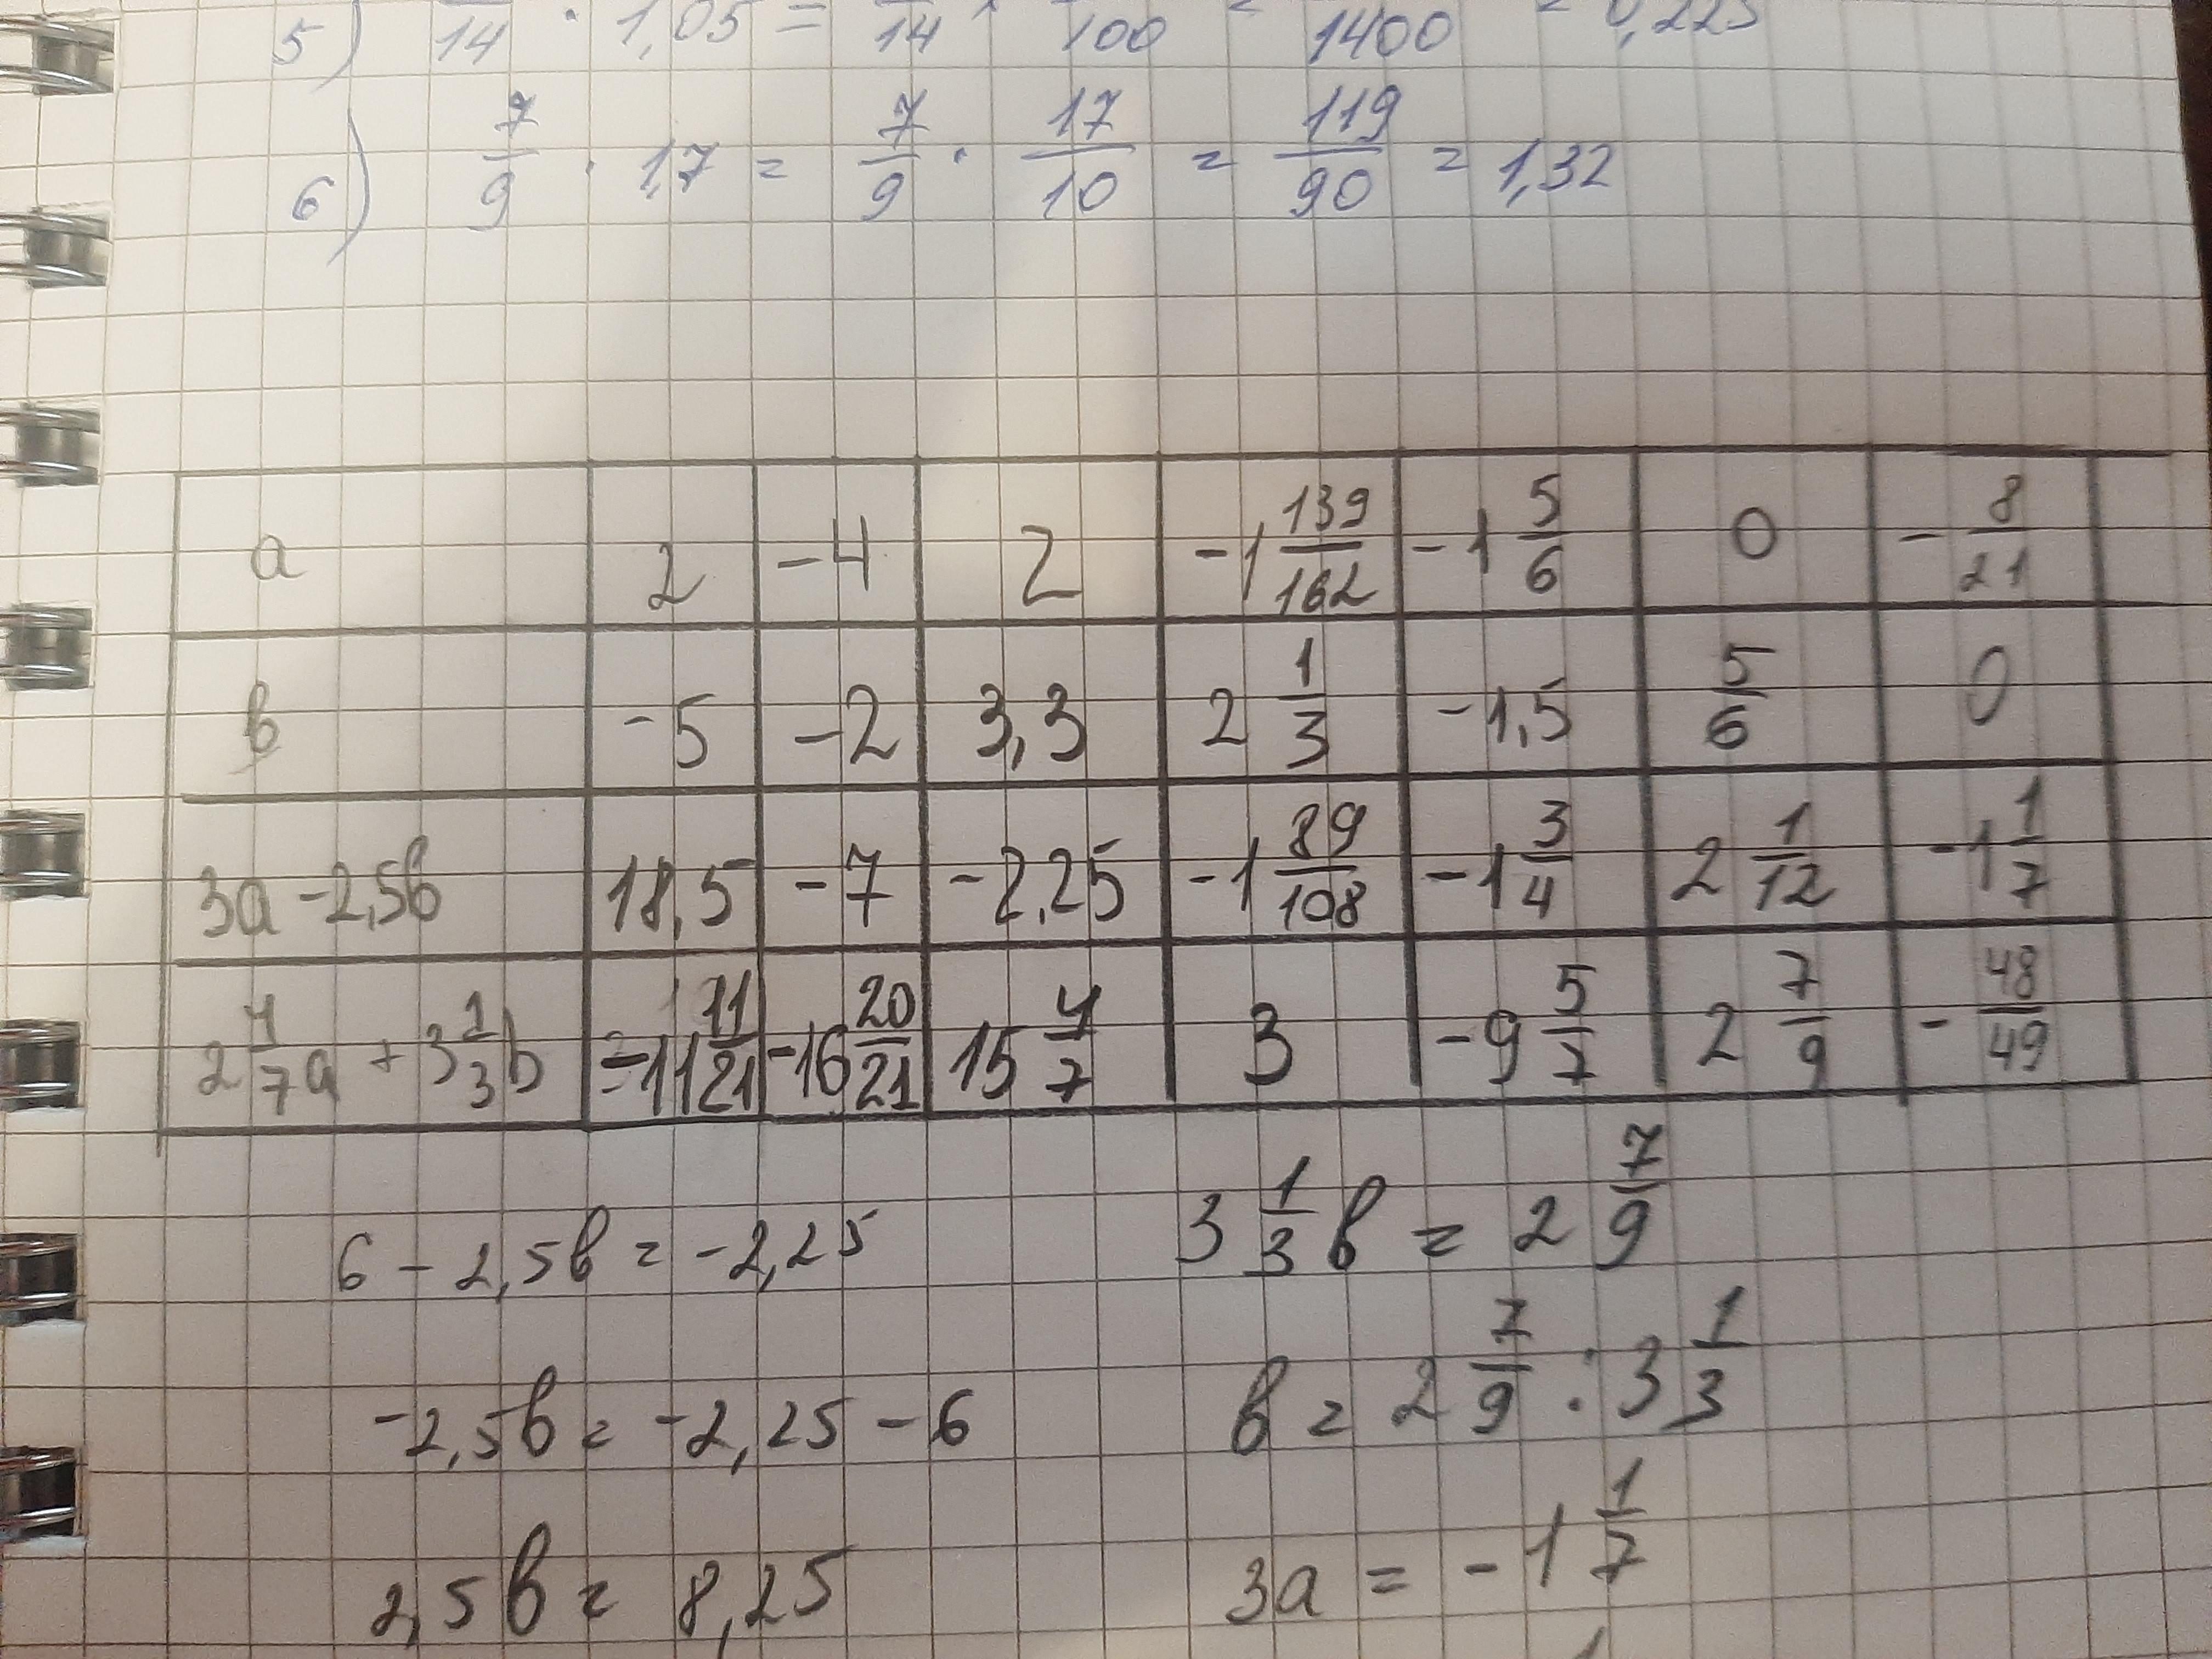 5) /14 · 1,05 = /14 · /100 = /1400 = 0,225
6) 7/9 · 1,7 = 7/9 · 17/10 = 119/90 = 1,32
a 2 -4 2 -1 139/162 -1 5/6 0 -8/21
b -5 -2 3,3 2 1/3 -1,5 5/6 0
3a - 2,5b 18,5 -7 -2,25 -1 89/108 -1 3/4 2 1/12 -1 1/7
2 4/7 a + 3 1/3 b -11 11/21 -16 20/21 15 4/7 3 -9 5/7 2 7/9 -48/49
6 - 2,5b = -2,25
3 1/3 b = 2 7/9
-2,5b = -2,25 - 6
b = 2 7/9 : 3 1/3
2,5b = 8,25
3a = -1 1/7